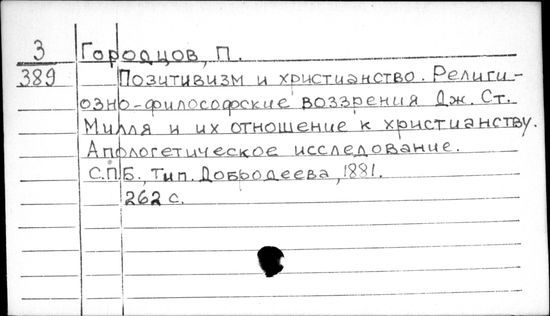 З Городцов, П.
389 Позитивизм и христианство. Религи-
озно-философские воззрения Дж. Ст.
Милля и их отношение к христианству.
Апологетическое исследование.
С.П.Б., Тип. Добродеева, 1881.
262 с.